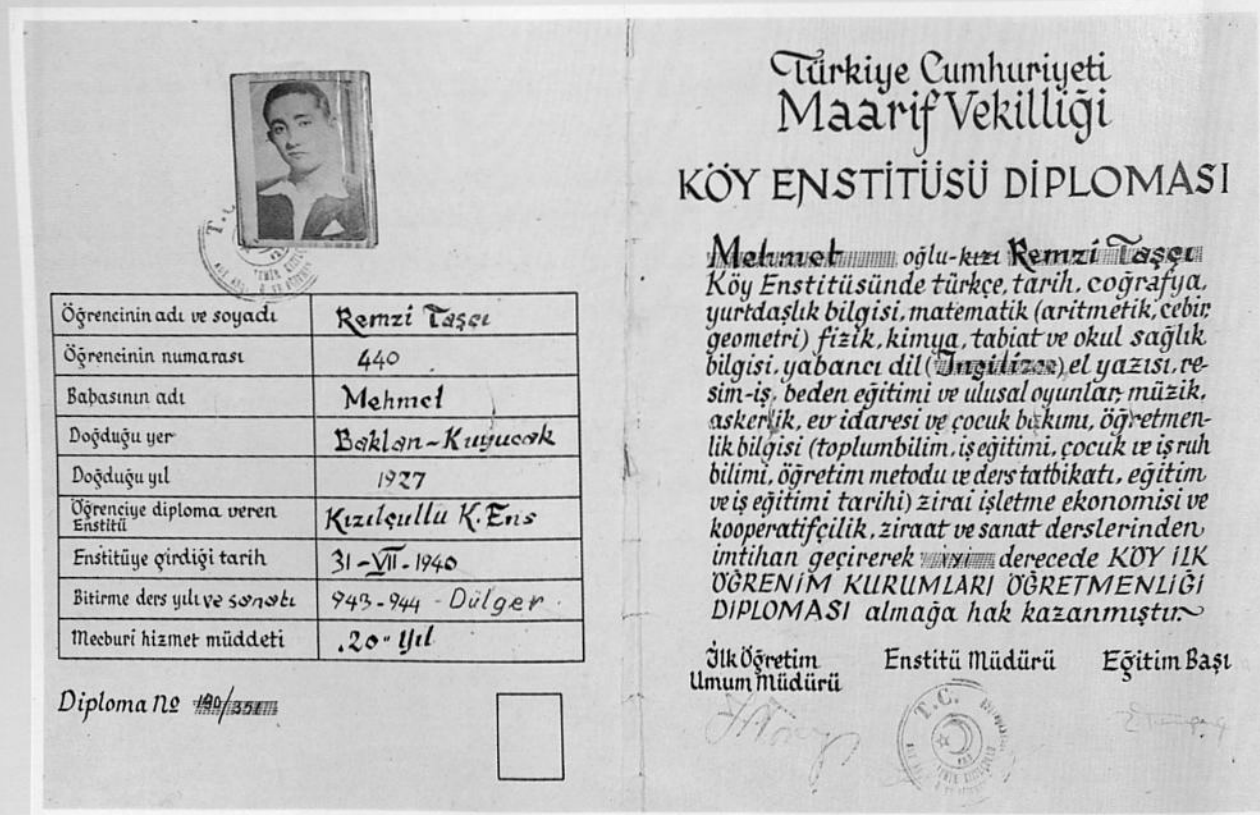 Öğrencinin adı ve soyadı Remzi Taşçı
Öğrencinin numarası 440
Babasının adı Mehmet
Doğduğu yer Baklan-Kuyucak
Doğduğu yıl 1927
Öğrenciye diploma veren Enstitü Kızılçullu K. Ens
Enstitüye girdiği tarih 31-VII-1940
Bitirme ders yılı ve sanatı 943-944 - Dülger.
Mecburi hizmet müddeti .20" Yıl
Diploma No 190/351
Türkiye Cumhuriyeti
Maarif Vekilliği
KÖY ENSTİTÜSÜ DİPLOMASI
Mehmet oğlu-kızı Remzi Taşçı
Köy Enstitüsünde türkçe, tarih, coğrafya,
yurtdaşlık bilgisi, matematik (aritmetik, cebir,
geometri) fizik, kimya, tabiat ve okul sağlık
bilgisi, yabancı dil (İngilizce) el yazısı, re-
sim-iş, beden eğitimi ve ulusal oyunlar, müzik,
askerlik, ev idaresi ve çocuk bakımı, öğretmen-
lik bilgisi (toplumbilim, iş eğitimi, çocuk ve iş ruh
bilimi, öğretim metodu ve ders tatbikatı, eğitim
ve iş eğitimi tarihi) zirai işletme ekonomisi ve
kooperatifçilik, ziraat ve sanat derslerinden
imtihan geçirerek iyi derecede KÖY İLK
ÖĞRENİM KURUMLARI ÖĞRETMENLİĞİ
DİPLOMASI almağa hak kazanmıştır.
İlk Öğretim Umum Müdürü
Enstitü Müdürü
Eğitim Başı
T.C.
T.C.